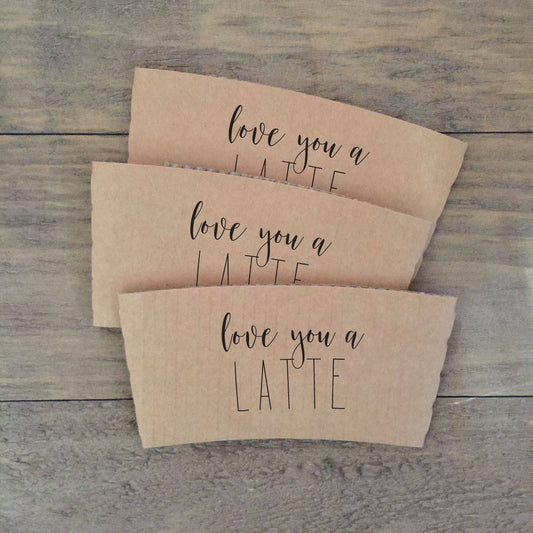 love you a
LATTE
love you a
LATTE
love you a
LATTE